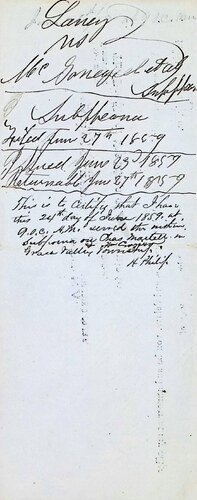 Laney
vs
Mc Garvey et al
Subpoena
Filed June 27th 1859
Issued June 23d 1859
Returnable June 27th 1859
This is to certify that I have
this 24th day of June 1859 at
9.O.C. A.M. served the within
Subpoena on Chas Martell in
Grass Valley Township
H. Philip